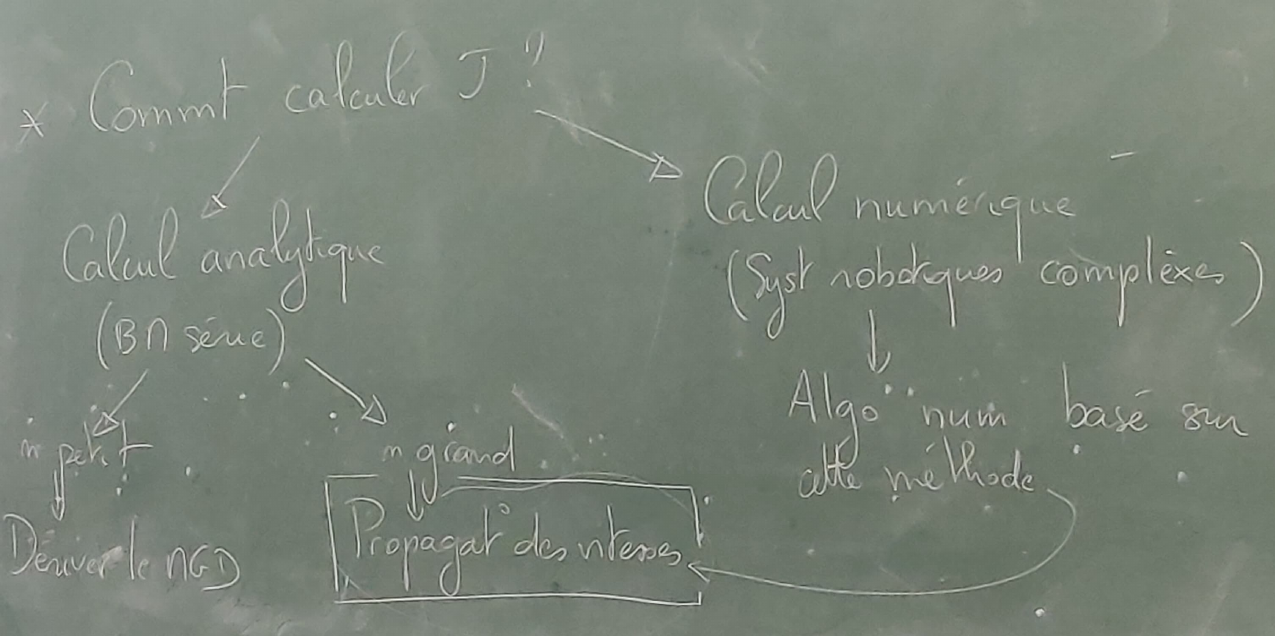 * Commt calculer J ?
Calcul analytique
(BM série)
n petit
Dériver le MGD
n grand
Propagat° des vitesses
Calcul numérique
(Syst robotiques complèxes)
Algo num basé sur
cette méthode